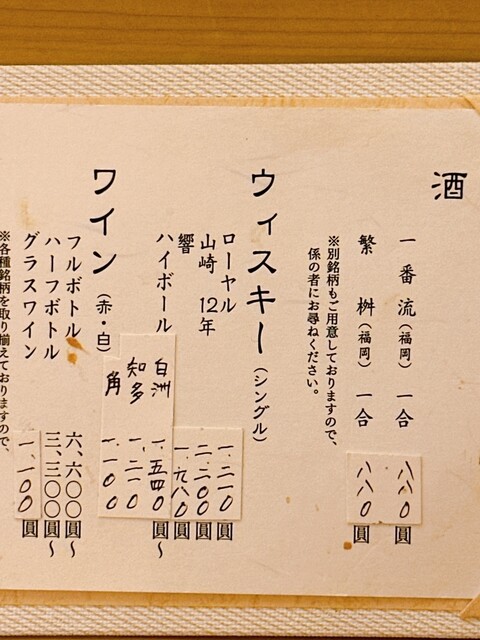 酒
一番流(福岡) 一合 八八〇圓
繁桝(福岡) 一合 八八〇圓
※別銘柄もご用意しておりますので、
係の者にお尋ねください。
ウィスキー(シングル)
ローヤル 一、二一〇圓
山崎12年 二、二〇〇圓
響 一、九八〇圓
ハイボール 白洲 一、五四〇圓〜
知多 一、二一〇
角 一、一〇〇
ワイン(赤・白)
フルボトル 六、六〇〇圓〜
ハーフボトル 三、三〇〇圓〜
グラスワイン 一、一〇〇圓
※各種銘柄を取り揃えておりますので、